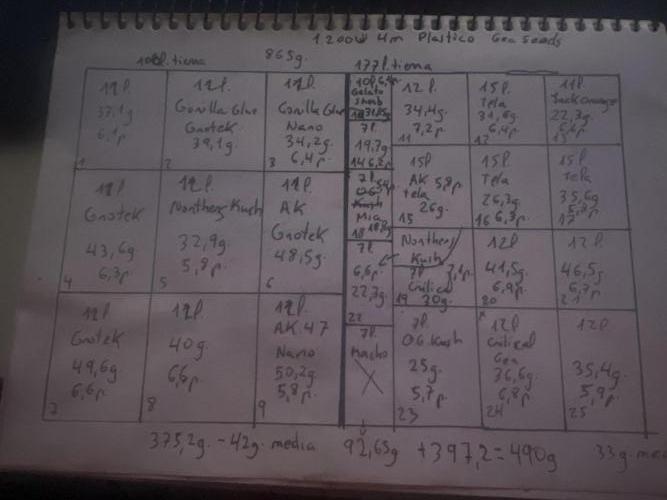 1.200W 4m Plastico Gea Seeds
108l. tierra 865g. 177l. tierra
11l.
37,1g
6,1p.
1
12l.
Gorilla Glue
Gnotek
39,1g.
2
11l.
Gorilla Glue
Nano
34,2g
6,4p.
3
11l.
Gnotek
43,6g
6,3p.
4
12l.
Northern Kush
32,9g.
5,8p.
5
11l.
AK
Gnotek
48,5g.
6
11l
Gnotek
49,6g
6,6p.
7
12l.
40g.
6,6p.
8
11l.
AK.47
Nano
50,2g
5,8p.
9
10l
Gelato
7l.
19,7g
14 6,2p.
12l.
34,4g.
7,2p.
11
15l.
Tela
31,6g.
6,4p.
12
11l.
Jack Orange
22,3g.
13
7l.
OG
Kush
Mia
18
15l
AK 5,8p.
Tela
15 26g.
15l.
Tela
26,3g.
16 6,3p.
15l.
Tela
35,6g
5,8p.
17
7l.
6,6p.
22,7g.
22
Northern
Kush
7l. 7,1p.
Critical
19 20g.
12l
41,5g.
6,9p.
20
12l.
46,5g.
6,7p.
21
7l.
Macho
7l.
OG Kush
25g.
5,7p.
23
12l.
Critical
Gea
36,6g.
6,8p.
24
12l.
35,4g.
5,9p.
25
375,2g. - 42g. media 92,65g +397,2=490g 33g. med